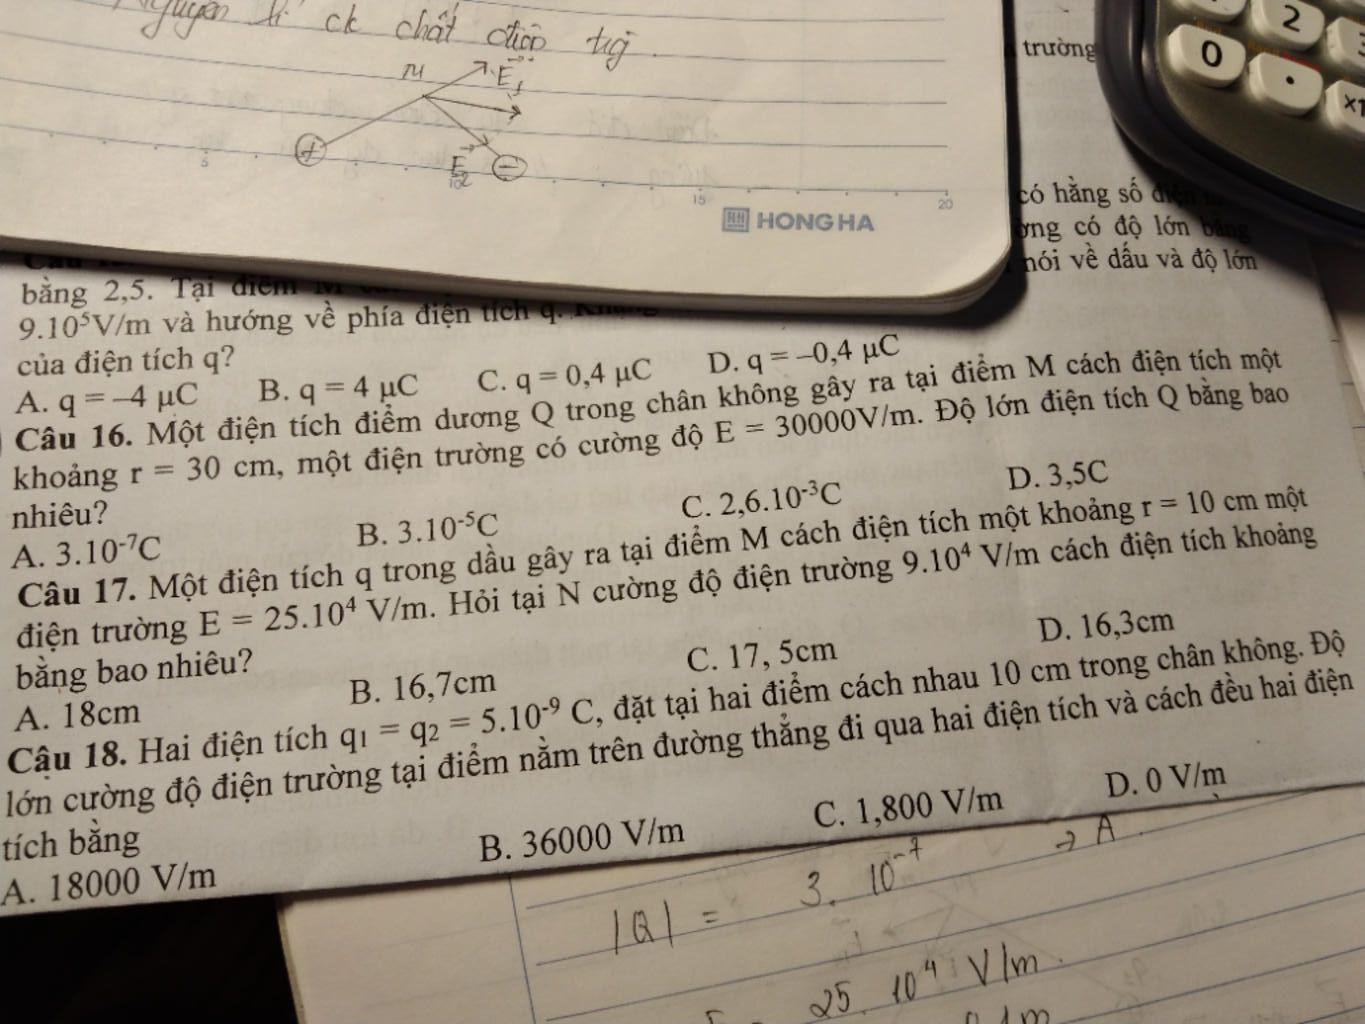 Nguyên lí ck chất điện
M
E₁
+
E₂
−
5
10
15
20
HONG HA
0
2
.
trường
có hằng số điện
ờng có độ lớn bằng
nói về dấu và độ lớn
bằng 2,5. Tại điểm M
9.10⁵V/m và hướng về phía điện tích q.
của điện tích q?
A. q = –4 μC B. q = 4 μC C. q = 0,4 μC D. q = –0,4 μC
Câu 16. Một điện tích điểm dương Q trong chân không gây ra tại điểm M cách điện tích một
khoảng r = 30 cm, một điện trường có cường độ E = 30000V/m. Độ lớn điện tích Q bằng bao
nhiêu?
A. 3.10⁻⁷C B. 3.10⁻⁵C C. 2,6.10⁻³C D. 3,5C
Câu 17. Một điện tích q trong dầu gây ra tại điểm M cách điện tích một khoảng r = 10 cm một
điện trường E = 25.10⁴ V/m. Hỏi tại N cường độ điện trường 9.10⁴ V/m cách điện tích khoảng
bằng bao nhiêu?
A. 18cm B. 16,7cm C. 17, 5cm D. 16,3cm
Câu 18. Hai điện tích q₁ = q₂ = 5.10⁻⁹ C, đặt tại hai điểm cách nhau 10 cm trong chân không. Độ
lớn cường độ điện trường tại điểm nằm trên đường thẳng đi qua hai điện tích và cách đều hai điện
tích bằng
A. 18000 V/m B. 36000 V/m C. 1,800 V/m D. 0 V/m
|Q| = 3. 10⁻⁷ → A
25. 10⁴ V/m